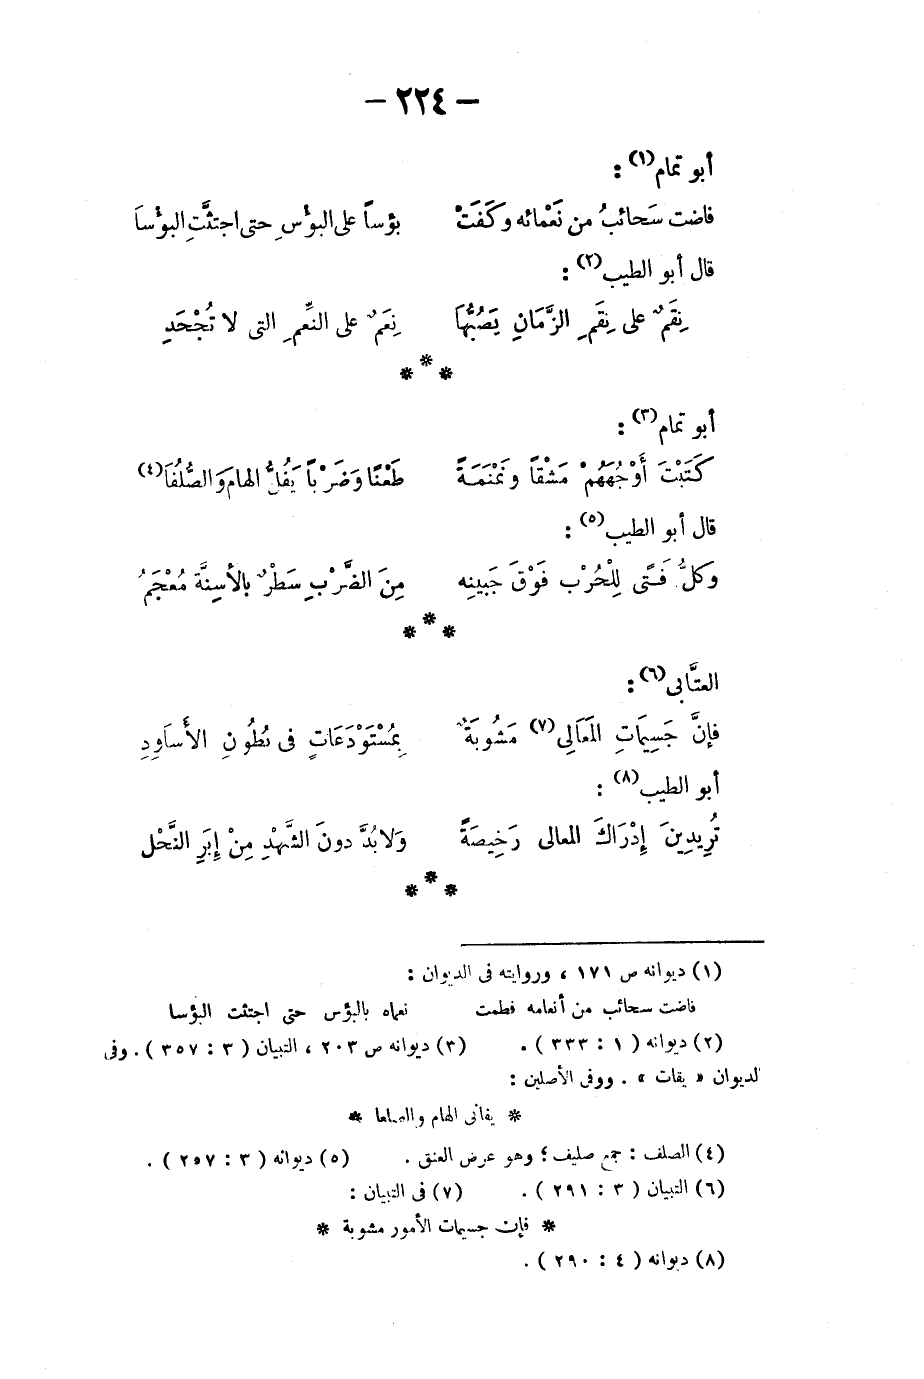 — ٢٢٤ —
أبو تمام(١) :
فاضت سَحائبُ من نَعْمائه وكَفَتْ بؤساً على البؤسِ حتى اجتثَّتِ البؤسَا
قال أبو الطيب(٢) :
نِقَمٌ على نِقَمِ الزَّمَانِ يَصُبُّهَا نِعَمٌ على النِّعَمِ التى لا تُجْحَدِ
* * *
أبو تمام(٣) :
كَتَبْتَ أَوْجُهَهُمْ مَشْقاً ونَمْنَمَةً طَعْنًا وَضَرْباً يَفُلُّ الهامَ وَالصُّلُفَا(٤)
قال أبو الطيب(٥) :
وكلُّ فَتًى لِلْحَرْبِ فَوْقَ جَبينِه مِنَ الضَّرْبِ سَطْرٌ بالأسِنَّة مُعْجَمُ
* * *
العتَّابى(٦) :
فإنَّ جَسِيمَاتِ المَعَالِى(٧) مَشُوبَةٌ بِمُسْتَوْدَعَاتٍ فى بُطُونِ الأَسَاوِدِ
أبو الطيب(٨) :
تُرِيدِينَ إِدْرَاكَ المعالى رَخِيصَةً وَلابُدَّ دونَ الشَّهْدِ مِنْ إبَرِ النَّحْل
* * *
(١) ديوانه ص ١٧١ ، وروايته فى الديوان :
فاضت سحائب من أنعامه فطمت نعماه بالبؤس حتى اجتثت البؤسا
(٢) ديوانه ( ١ : ٣٣٣ ) . (٣) ديوانه ص ٢٠٣ ، التبيان ( ٣ : ٣٥٧ ) . وفى
الديوان « يقات » . ووفى الأصلين :
* يفانى الهام والصلعا *
(٤) الصلف : جمع صليف ؛ وهو عرض العنق . (٥) ديوانه ( ٣ : ٢٥٧ ) .
(٦) التبيان ( ٣ : ٢٩١ ) . (٧) فى التبيان :
* فإن جسيمات الأمور مشوبة *
(٨) ديوانه ( ٤ : ٢٩٠ ) .